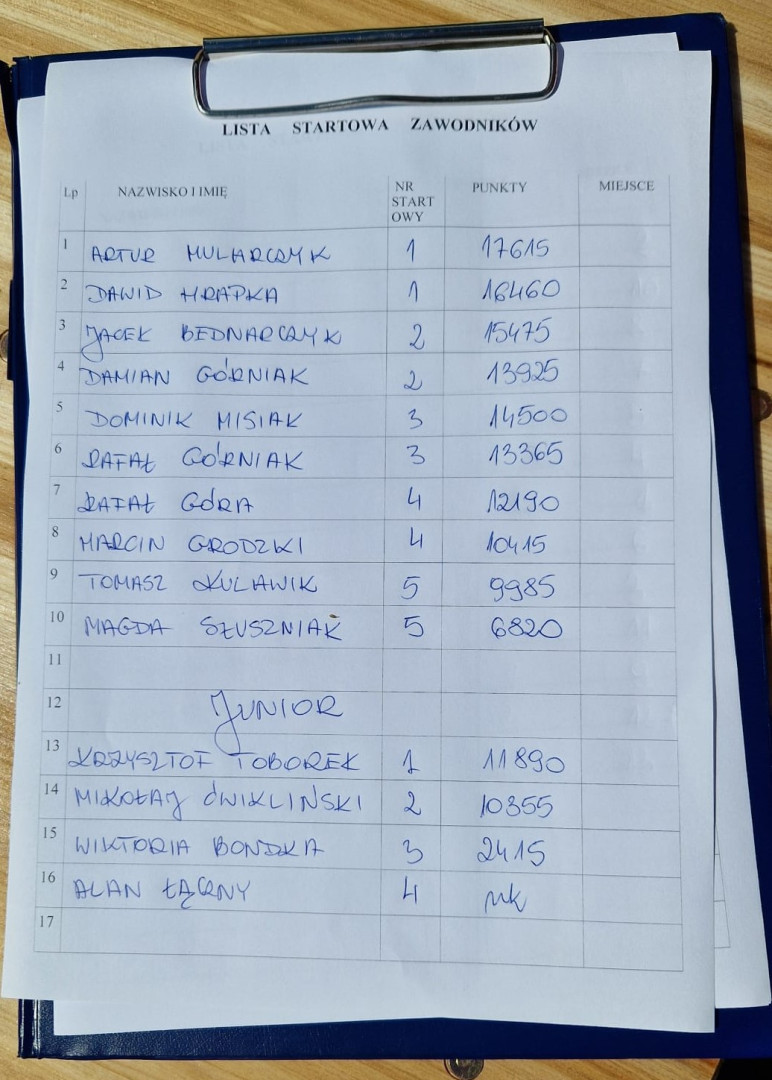 LISTA STARTOWA ZAWODNIKÓW
Lp NAZWISKO I IMIĘ NR STARTOWY PUNKTY MIEJSCE
1 ARTUR MULARCZYK 1 17615
2 DAWID HRAPKA 1 16460
3 JACEK BEDNARCZYK 2 15475
4 DAMIAN GÓRNIAK 2 13925
5 DOMINIK MISIAK 3 14500
6 RAFAŁ GÓRNIAK 3 13365
7 RAFAŁ GÓRA 4 12190
8 MARCIN GRODZKI 4 10415
9 TOMASZ KULAWIK 5 9985
10 MAGDA SZUSZNIAK 5 6820
11
12 JUNIOR
13 KRZYSZTOF TOBOREK 1 11890
14 MIKOŁAJ ĆWIKLIŃSKI 2 10355
15 WIKTORIA BONDKA 3 2415
16 ALAN ŁĄCZNY 4 nk
17